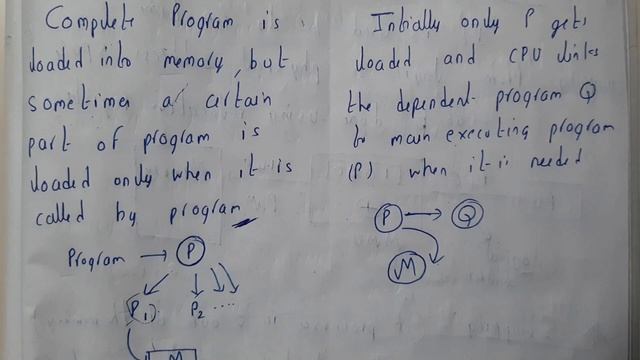 Complete Program is
loaded into memory, but
sometimes a certain
part of program is
loaded only when it is
called by program
Program → P
P1 P2 ....
M
Initially only P gets
loaded and CPU links
the dependent program Q
to main executing program
(P) when it is needed
P → Q
M